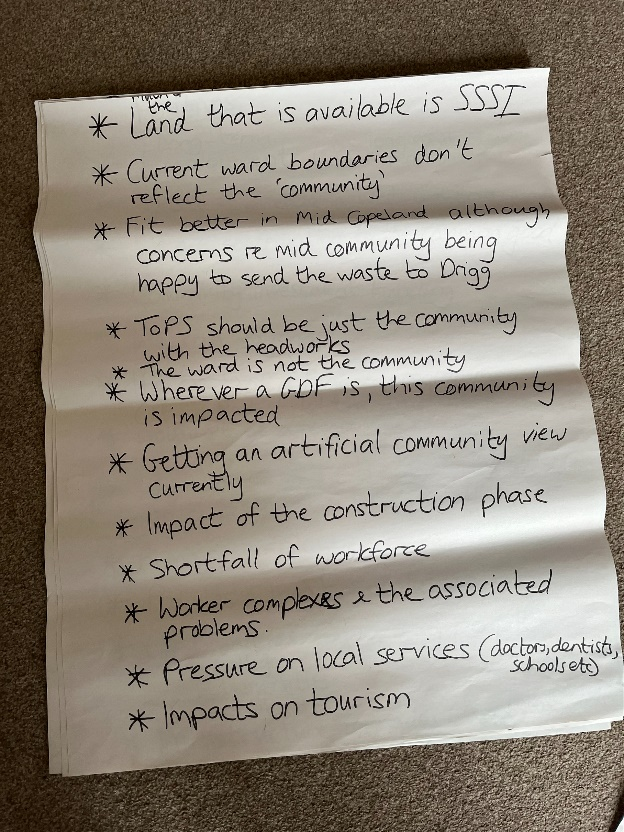 the
* Land that is available is SSSI
* Current ward boundaries don't
reflect the 'community'
* Fit better in Mid Copeland although
concerns re mid community being
happy to send the waste to Drigg
* ToPS should be just the community
with the headworks
* The ward is not the community
* Wherever a GDF is, this community
is impacted
* Getting an artificial community view
currently
* Impact of the construction phase
* Shortfall of workforce
* Worker complexes & the associated
problems.
* Pressure on local services (doctors, dentists,
schools etc)
* Impacts on tourism